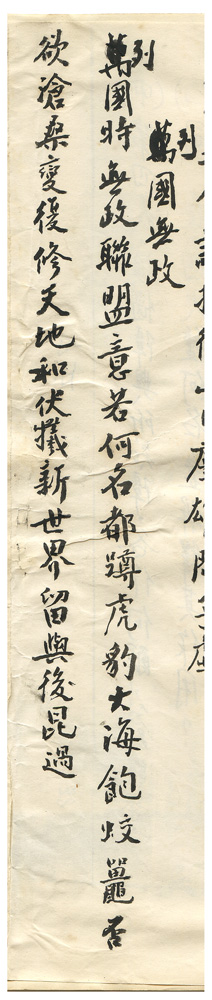 列
萬國無政
列
萬國時無政聯盟意若何名都蹲虎豹大海飽蛟鼉否
欲滄桑變復修天地和伏犧新世界留與後昆過